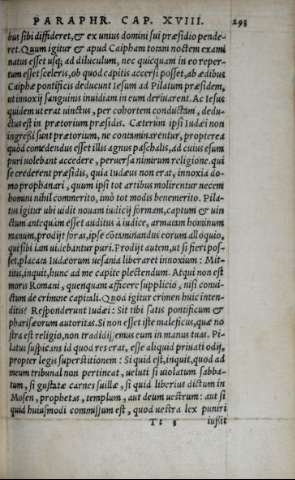 PARAPHR. CAP. XVIII. 293
bus sibi diffideret, & ex unius domini sui præsidio pende-
ret. Quum igitur & apud Caipham totam noctem exami
natus esset usq; ad diluculum, nec quicquam in eo reper-
tum esset sceleris, ob quod capitis accersi posset, ab ædibus
Caiphæ pontificis deducunt Iesum ad Pilatum præsidem,
ut innoxij sanguinis inuidiam in eum deriuarent. Ac Iesus
quidem ut erat uinctus, per cohortem conductam, dedu-
ctus est in prætorium præsidis. Cæterum ipsi Iudæi non
ingressi sunt prætorium, ne contaminarentur, propterea
quòd comedendus esset illis agnus paschalis, ad cuius esum
puri uolebant accedere, peruersa nimirum religione, qui
se crederent præsidis, quia Iudæus non erat, innoxia do-
mo prophanari, quum ipsi tot artibus molirentur necem
homini nihil commerito, imò tot modis benemerito. Pila-
tus igitur ubi uidit nouam iudicij formam, captum & uin
ctum antequàm esset auditus à iudice, armatam hominum
manum, prodijt foras, ipse cōmunandus eorum alloquio,
qui sibi iam uidebantur puri. Prodijt autem, ut si fieri pos-
set, placata Iudæorum uesania liberaret innoxium: Mit-
titis, inquit, hunc ad me capite plectendum. Atqui non est
moris Romani, quenquam afficere supplicio, nisi conui-
ctum de crimine capitali. Quod igitur crimen huic inten-
ditis? Responderunt Iudæi: Sit tibi satis pontificum &
pharisæorum autoritas. Si non esset iste maleficus, quæ no
stra est religio, non tradidissemus eum in manus tuas. Pi-
latus suspicans id quod res erat, esse aliquid priuati odij,
propter legis superstitionem: Si quid est, inquit, quod ad
meum tribunal non pertineat, ueluti si uiolatum sabba-
tum, si gustatæ carnes suillæ, si quid liberius dictum in
Mosen, prophetas, templum, aut deum uestrum: aut si
quid huiusmodi commissum est, quod uestra lex puniri
T: 5 iussit